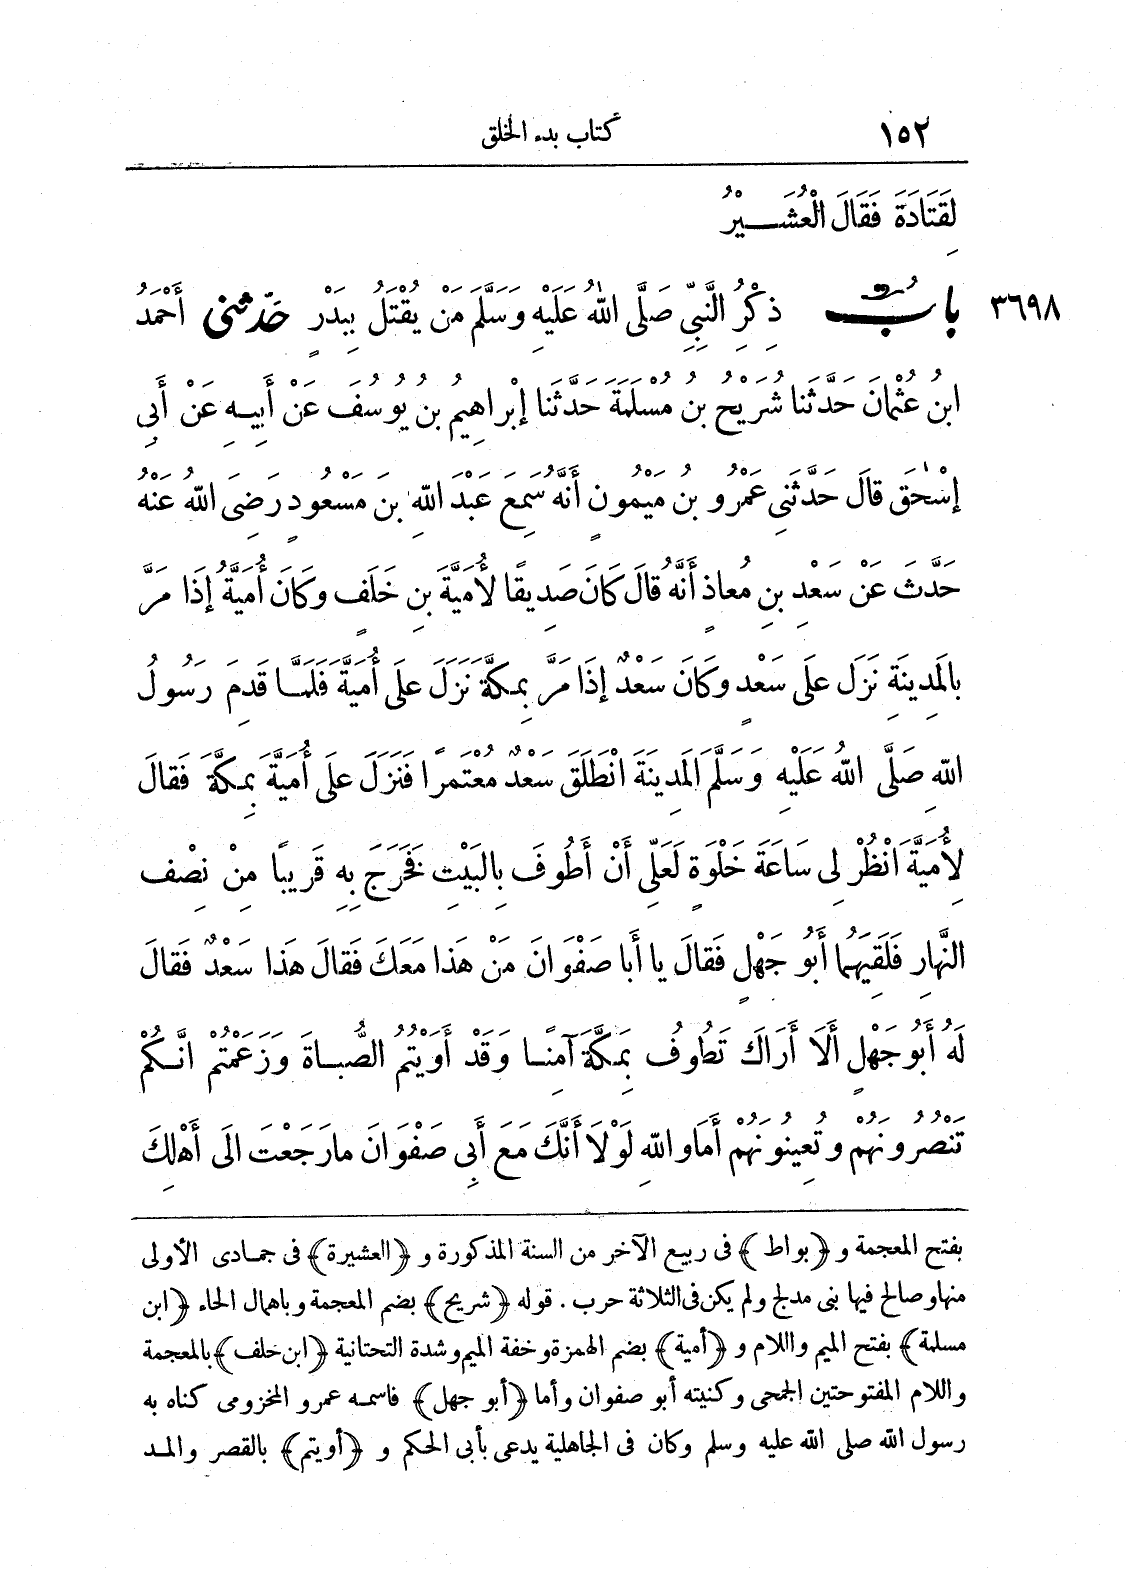 ١٥٢
كتاب بدء الخلق
لِقَتَادَةَ فَقَالَ الْعُشَيْرُ
٣٦٩٨
بابُ ذِكْرُ النَّبِيِّ صَلَّى اللهُ عَلَيْهِ وَسَلَّمَ مَنْ يُقْتَلُ بِبَدْرٍ حَدّثنى أَحْمَدُ
ابنُ عُثْمَانَ حَدَّثَنَا شُرَيْحُ بنُ مَسْلَمَةَ حَدَّثَنَا إبْرَاهِيمُ بنُ يُوسُفَ عَنْ أَبِيهِ عَنْ أَبِي
إسْحٰقَ قَالَ حَدَّثَنِي عَمْرُو بنُ مَيْمُونٍ أَنَّهُ سَمِعَ عَبْدَ اللهِ بنَ مَسْعُودٍ رَضِىَ اللهُ عَنْهُ
حَدَّثَ عَنْ سَعْدِ بنِ مُعَاذٍ أَنَّهُ قَالَ كَانَ صَدِيقًا لأُمَيَّةَ بنِ خَلَفٍ وكَانَ أُمَيَّةُ إذَا مَرَّ
بالْمَدِينَةِ نَزَلَ عَلَى سَعْدٍ وكَانَ سَعْدٌ إذَا مَرَّ بِمَكَّةَ نَزَلَ عَلَى أُمَيَّةَ فَلَمَّا قَدِمَ رَسُولُ
اللهِ صَلَّى اللهُ عَلَيْهِ وَسَلَّمَ الْمَدِينَةَ انْطَلَقَ سَعْدٌ مُعْتَمِرًا فَنَزَلَ عَلَى أُمَيَّةَ بِمَكَّةَ فَقَالَ
لِأُمَيَّةَ انْظُرْ لِى سَاعَةَ خَلْوَةٍ لَعَلِّى أَنْ أَطُوفَ بِالبَيْتِ فَخَرَجَ بِهِ قَرِيبًا مِنْ نِصْفِ
النَّهَارِ فَلَقِيَهُمَا أَبُو جَهْلٍ فَقَالَ يا أَبا صَفْوَانَ مَنْ هَذا مَعَكَ فَقَالَ هَذا سَعْدٌ فَقَالَ
لَهُ أَبُو جَهْلٍ أَلَا أَرَاكَ تَطُوفُ بِمَكَّةَ آمِنًا وَقَدْ أَوَيْتُمُ الصُّبَاةَ وَزَعَمْتُمْ انَّكُمْ
تَنْصُرُونَهُمْ وتُعِينُونَهُمْ أَمَا واللهِ لَوْلَا أَنَّكَ مَعَ أَبِى صَفْوَانَ مارَجَعْتَ الَى أَهْلِكَ
بفتح المعجمة و ﴿بواط﴾ فى ربيع الآخر من السنة المذكورة و ﴿العشيرة﴾ فى جمادى الأولى
منها وصالح فيها بنى مدلج ولم يكن فى الثلاثة حرب . قوله ﴿شريح﴾ بضم المعجمة وباهمال الحاء ﴿ابن
مسلمة﴾ بفتح الميم واللام و ﴿أمية﴾ بضم الهمزة وخفة الميم وشدة التحتانية ﴿ابن خلف﴾ بالمعجمة
واللام المفتوحتين الجمحى وكنيته أبو صفوان وأما ﴿أبو جهل﴾ فاسمه عمرو المخزومى كناه به
رسول الله صلى الله عليه وسلم وكان فى الجاهلية يدعى بأبى الحكم و ﴿أويتم﴾ بالقصر والمد